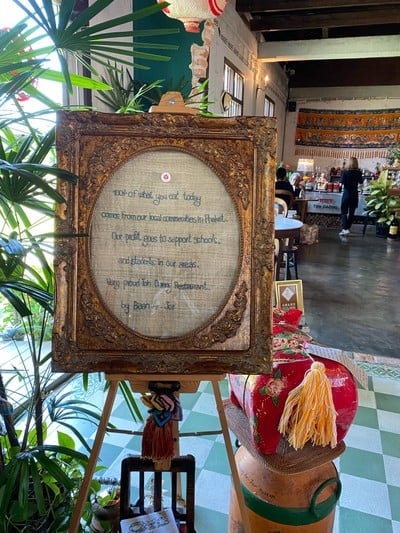 100% of what you eat today
comes from our local communities in Phuket.
Our profit goes to support schools,
and students in our areas.
Very proud Toh Daeng Restaurant.
by Baan Ar-Jor